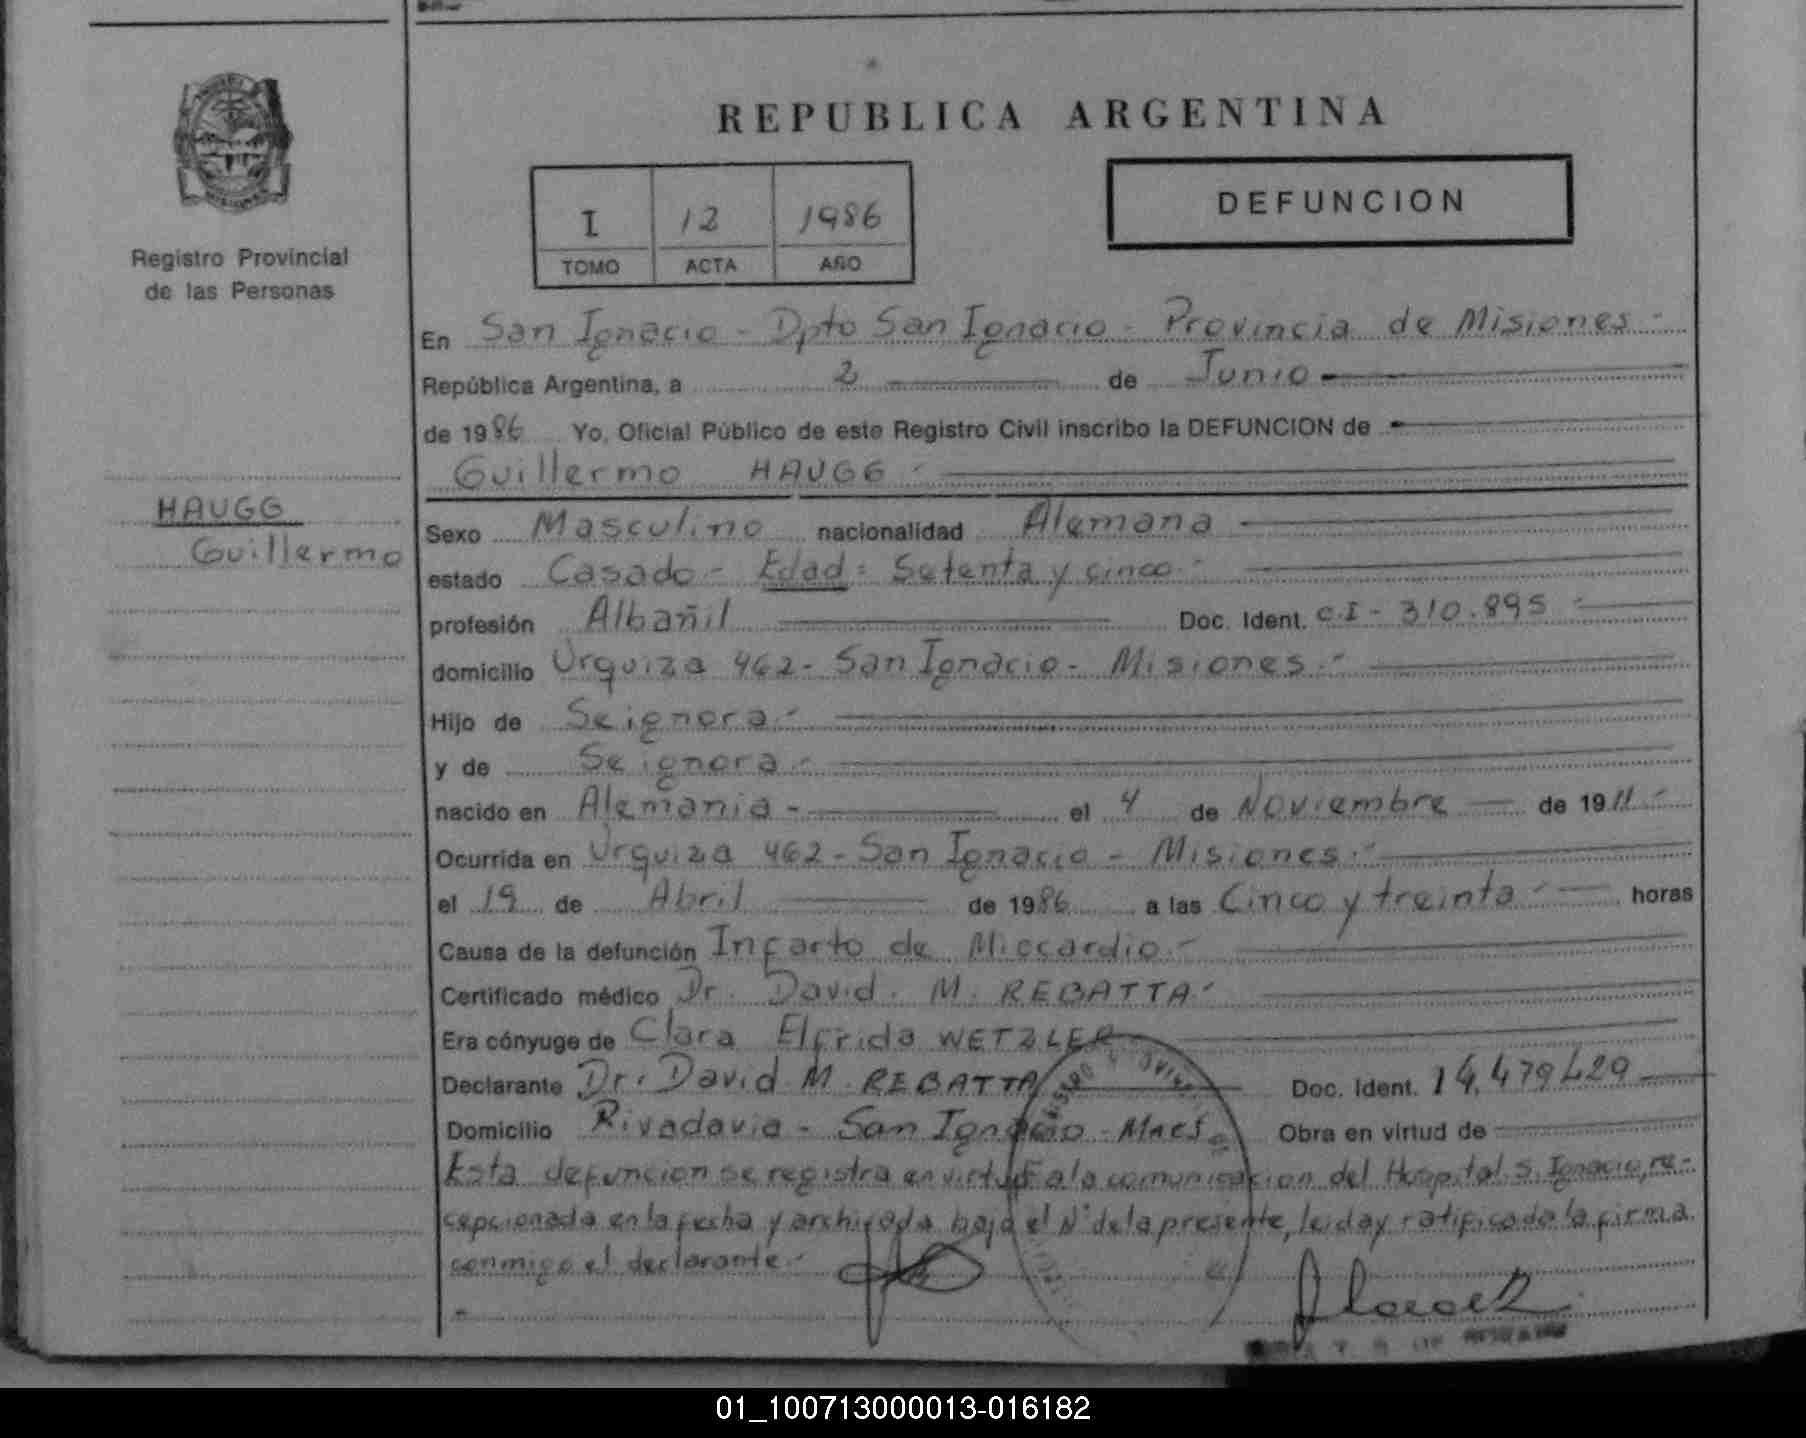 REPUBLICA ARGENTINA
I 12 1986
TOMO ACTA AÑO
DEFUNCION
Registro Provincial
de las Personas
HAUGG
Guillermo
En San Ignacio - Dpto San Ignacio - Provincia de Misiones -
República Argentina, a 2 de Junio
de 1986 Yo, Oficial Público de este Registro Civil inscribo la DEFUNCION de
Guillermo HAUGG -
Sexo Masculino nacionalidad Alemana
estado Casado - Edad: Setenta y cinco -
profesión Albañil Doc. Ident. C.I - 310.895
domicilio Urquiza 462 - San Ignacio - Misiones -
Hijo de Se ignora -
y de Se ignora -
nacido en Alemania - el 4 de Noviembre de 1911 -
Ocurrida en Urquiza 462 - San Ignacio - Misiones -
el 19 de Abril de 1986 a las Cinco y treinta - horas
Causa de la defunción Infarto de Miocardio -
Certificado médico Dr. David M. REBATTA -
Era cónyuge de Clara Elfrida WETZLER
Declarante Dr. David M. REBATTA Doc. Ident. 14.479429
Domicilio Rivadavia - San Ignacio - Mnes Obra en virtud de
Esta defuncion se registra en virtud a la comunicacion del Hospital S. Ignacio, re-
cepcionada en la fecha y archivada bajo el N° de la presente, leida y ratificada la firma
conmigo el declarante -
01_100713000013-016182